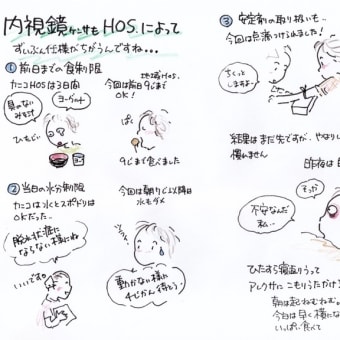 内視鏡ケンサも HOS. によって
ずいぶん仕様がちがうんですね...
① 前日までの食制限
カニコHOSは3日間
具のない
みそ汁
ヨーグルト
ひもじい
地域HOS.
今回は前日9じまで
OK!
ぱく
9じまで食べました
② 当日の水分制限
カニコは水とスポドリは
OKだった..
脱水状態に
ならない様にね
いいです。
今回は朝りじ以降は
水もダメ
動かない様に
4じかん待とう!
③ 安定剤の取り扱いも..
今回は点滴つけられました!
ちくっと
しますよ
結果はまだ先ですが、やはりし
慣れません
昨夜は
そっか
不安なんだ
私...
ひたすら寝返りうって
アレクサに こもりうたかけ
朝は起ねむねむ。
今日は早く横にな
いっぱい食べて